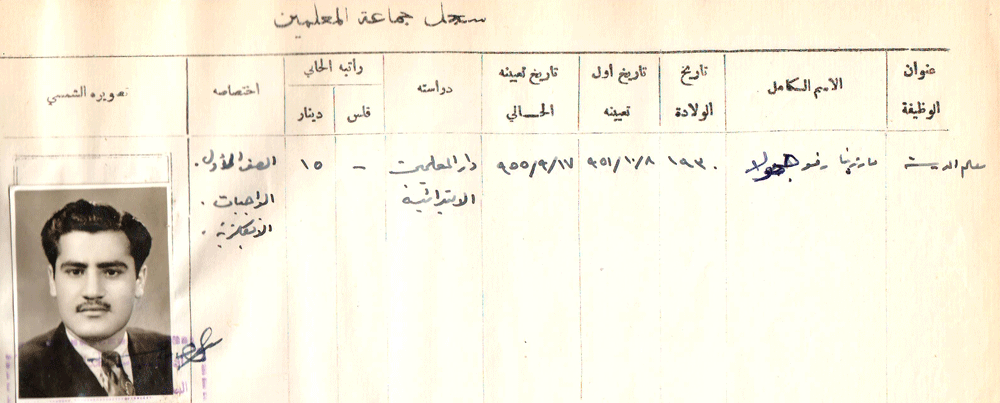 سجل جماعة المعلمين
عنوان الوظيفة
الاسم الكامل
تاريخ الولادة
تاريخ أول تعيينه
تاريخ تعيينه الحالي
دراسته
راتبه الحالي
فلس
دينار
اختصاصه
تصويره الشمسي
معلم المدرسة
رفو
١٩٣٠
٩٥١/١٠/٨
٩٥٥/٩/١٧
دار المعلمين
الابتدائية
–
١٥
الصف الأول.
الواجبات.
الانكليزية.